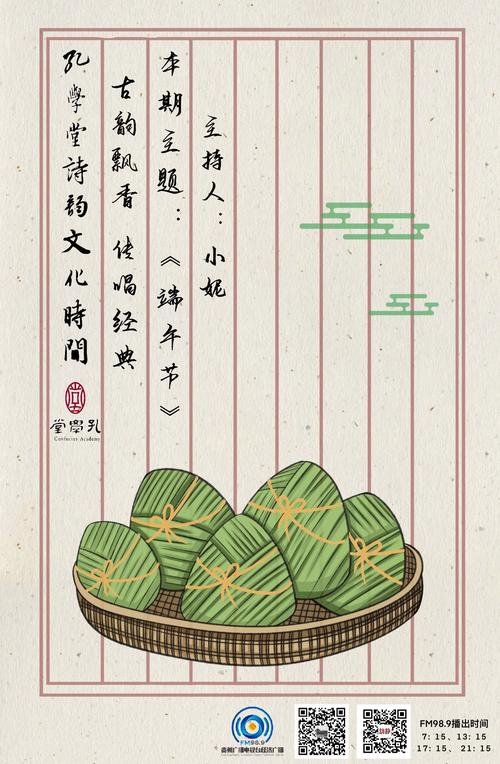 孔學堂詩韵文化時間
古韵飘香 传唱经典
本期主题：《端午节》
主持人：小妮
孔學堂
Confucius Academy
FM98.9
贵州广播电视台经济广播
FM98.9播出时间
7:15、13:15
17:15、21:15